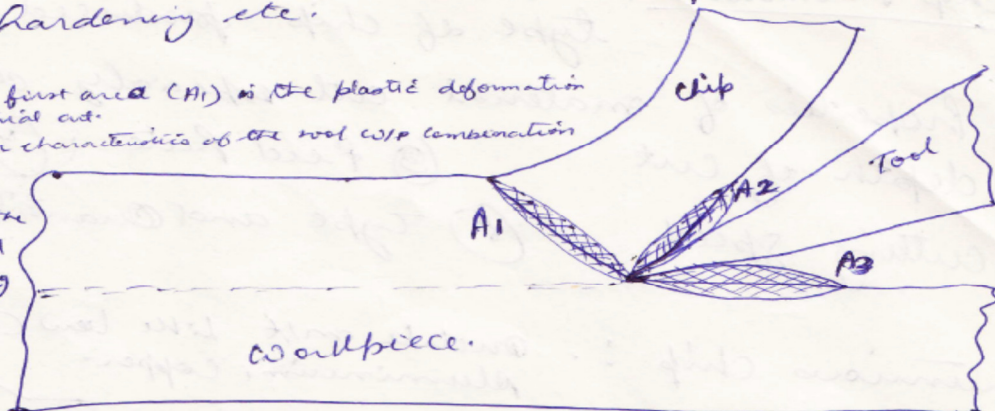 hardening etc.
first area (A1) is the plastic deformation
cut.
characteristics of the tool w/p combination
chip
Tool
A1
A2
A3
Workpiece.